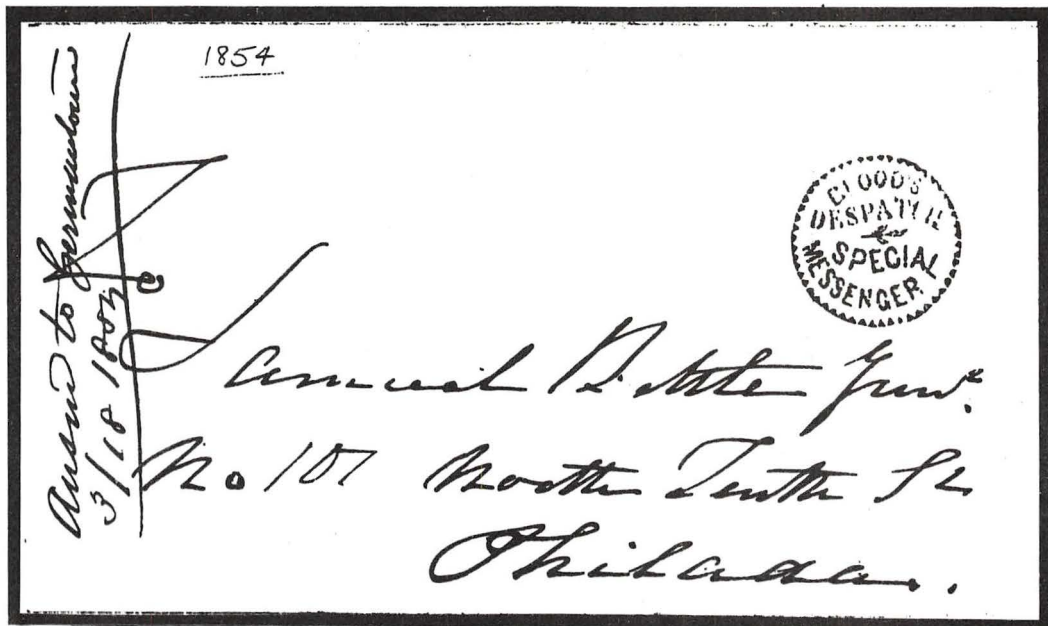 1854
Answd to Germantown
3/18 1853
BLOOD'S
DESPATCH
SPECIAL
MESSENGER
Samuel Bettle Junr.
No 101 North Tenth St
Philada.